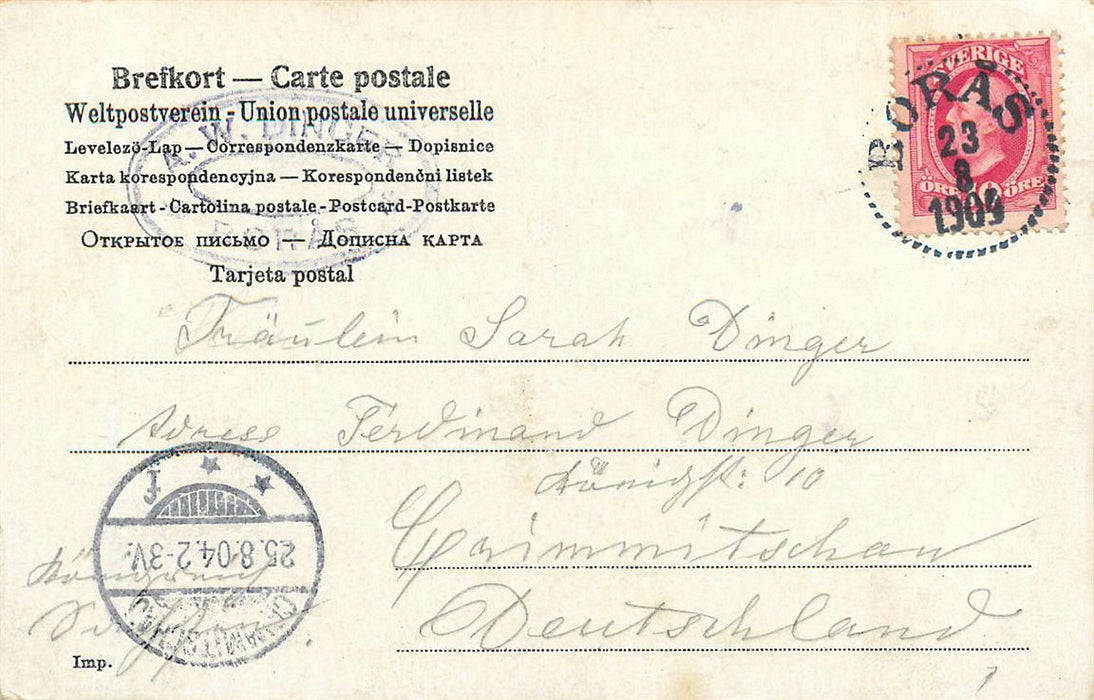 Brefkort — Carte postale
Weltpostverein - Union postale universelle
Levelezö-Lap — Correspondenzkarte — Dopisnice
Karta korespondencyjna — Korespondenčni listek
Briefkaart - Cartolina postale - Postcard - Postkarte
Открытое письмо — Дописна карта
Tarjeta postal
A. W. DINGER
BORÅS
SVERIGE
10
ÖRE ÖRE
BORÅS
23
8
1904
Fräulein Sarah Dinger
Adress Ferdinand Dinger
Königstr. 10
Crimmitschau
Deutschland
Königreich
Sachsen
f
25.8.04.2-3V.
CRIMMITSCHAU
Imp.